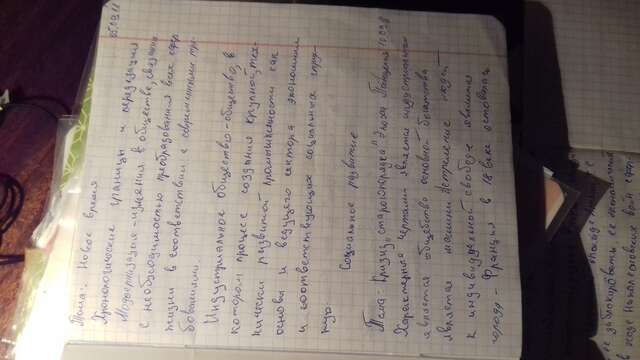 Тема: Новое время
Хронологические границы и периодизация 05.09.18
Модернизация - измения в обществе, связанные
с необходимостью преобразования всех сфер
жизни в соответствии с современными тре-
бованиями.
Индустриальное общество - общество, в
котором процесс создания крупной, тех-
нически развитой промышленности как
основы и ведущего сектора экономики
и соответствующих социальных струк-
тур.
Социальное развитие
Тема: Кризис "старого порядка" Эпоха
Характерные чертами является индустриальное
является общество основной богатства
является машины Астремление людей
к индивидуальной свободе является
города - Франция в 18 веке оставалась
заблокировать, ее экономически
в ходе Наполеоновских войн